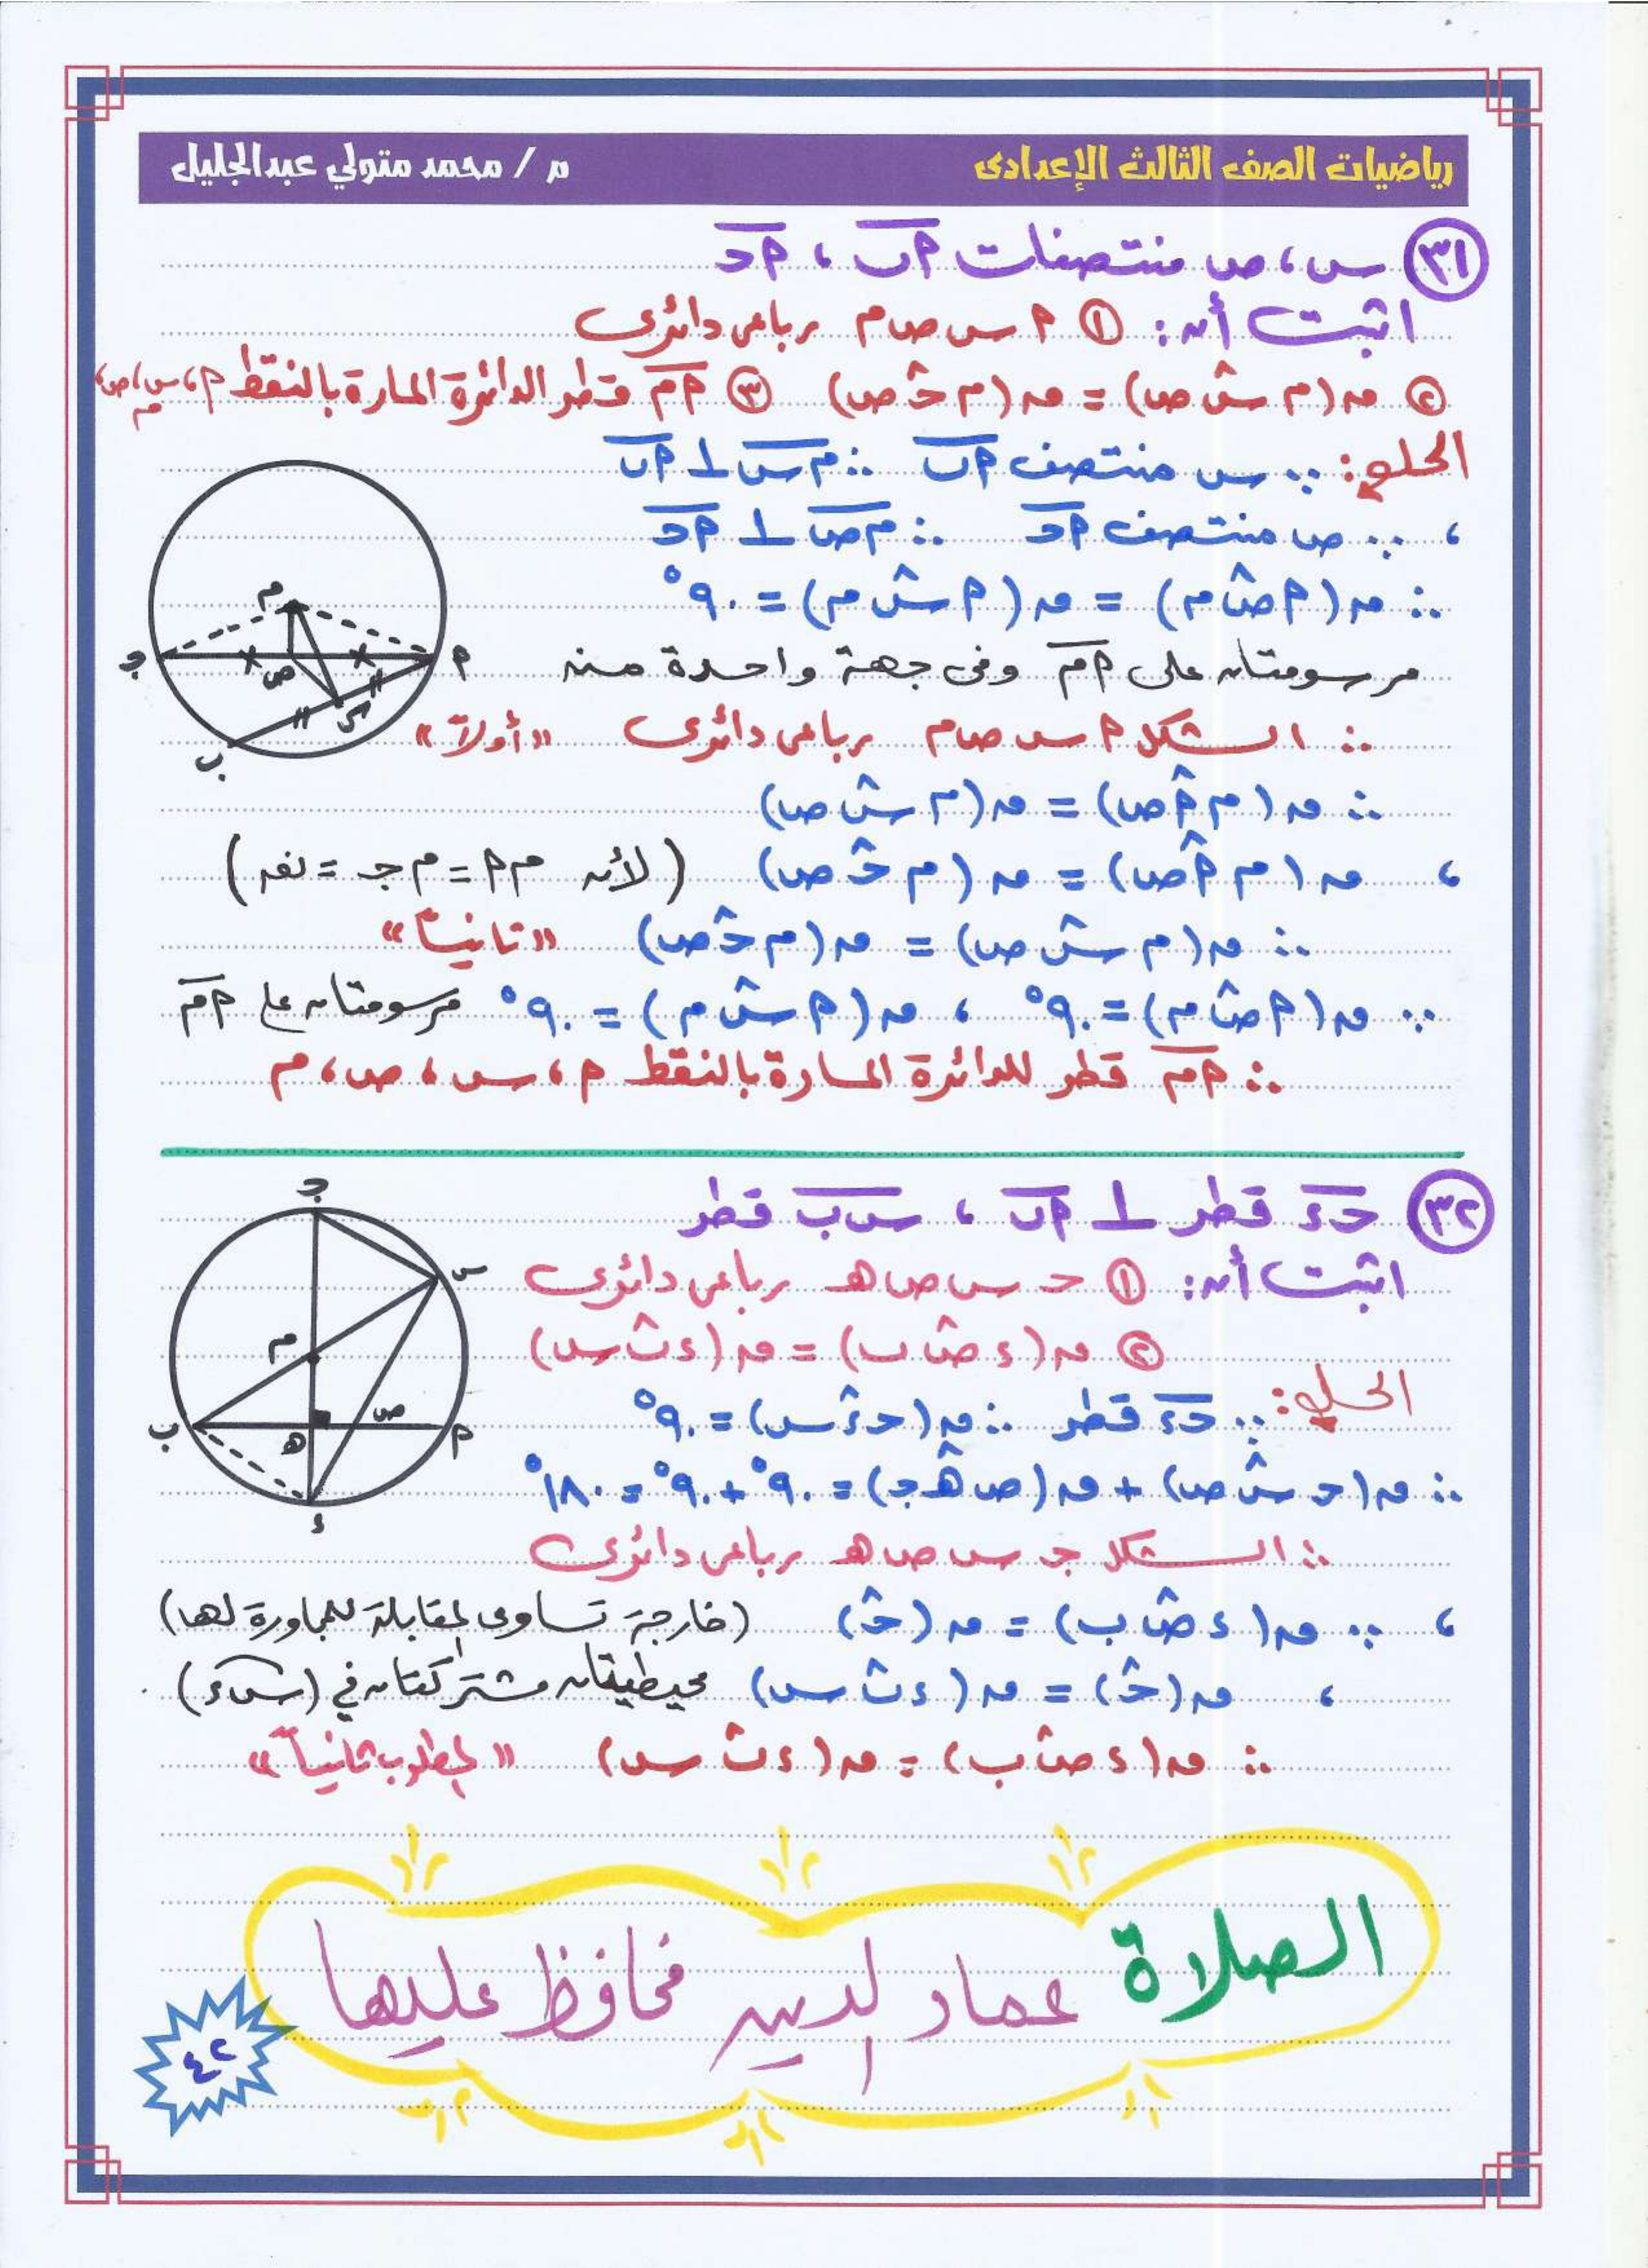 رياضيات الصف الثالث الإعدادى
م / محمد متولي عبدالجليل
٣١ س ، ص منتصفات أب ، أجـ
اثبت أن : ① أ س ص م رباعى دائرى
② ق(م س ص) = ق(م جـ ص) ③ أم قطر الدائرة المارة بالنقط أ ، س ، ص ، م
الحل : ∵ س منتصف أب ∴ م س ⊥ أب
، ∵ ص منتصف أجـ ∴ م ص ⊥ أجـ
∴ ق(أ ص م) = ق(أ س م) = ٩٠°
مرسومتان على أم وفى جهة واحدة منه
∴ الشكل أ س ص م رباعى دائرى «أولاً»
∴ ق(م أ ص) = ق(م س ص)
، ق(م أ ص) = ق(م جـ ص) (لأن م أ = م جـ = نق)
∴ ق(م س ص) = ق(م جـ ص) «ثانياً»
∵ ق(أ ص م) = ٩٠° ، ق(أ س م) = ٩٠° مرسومتان على أم
∴ أم قطر للدائرة المارة بالنقط أ ، س ، ص ، م
م
أ
جـ
ص
س
ب
٣٢ جـ ء قطر ⊥ أب ، س ب قطر
اثبت أن : ① جـ س ص هـ رباعى دائرى
② ق(ء ص ب) = ق(ء ب س)
الحل : ∵ جـ ء قطر ∴ ق(جـ ء س) = ٩٠°
∴ ق(جـ س ص) + ق(ص هـ جـ) = ٩٠° + ٩٠° = ١٨٠°
∴ الشكل جـ س ص هـ رباعى دائرى
، ∵ ق(ء ص ب) = ق(جـ) (خارجة تساوى المقابلة للمجاورة لها)
، ق(جـ) = ق(ء ب س) محيطيتان مشتركتان في (س ء)
∴ ق(ء ص ب) = ق(ء ب س) «المطلوب ثانياً»
جـ
س
م
ص
أ
ب
هـ
ء
الصلاة عماد الدين فحافظ عليها
٤٢